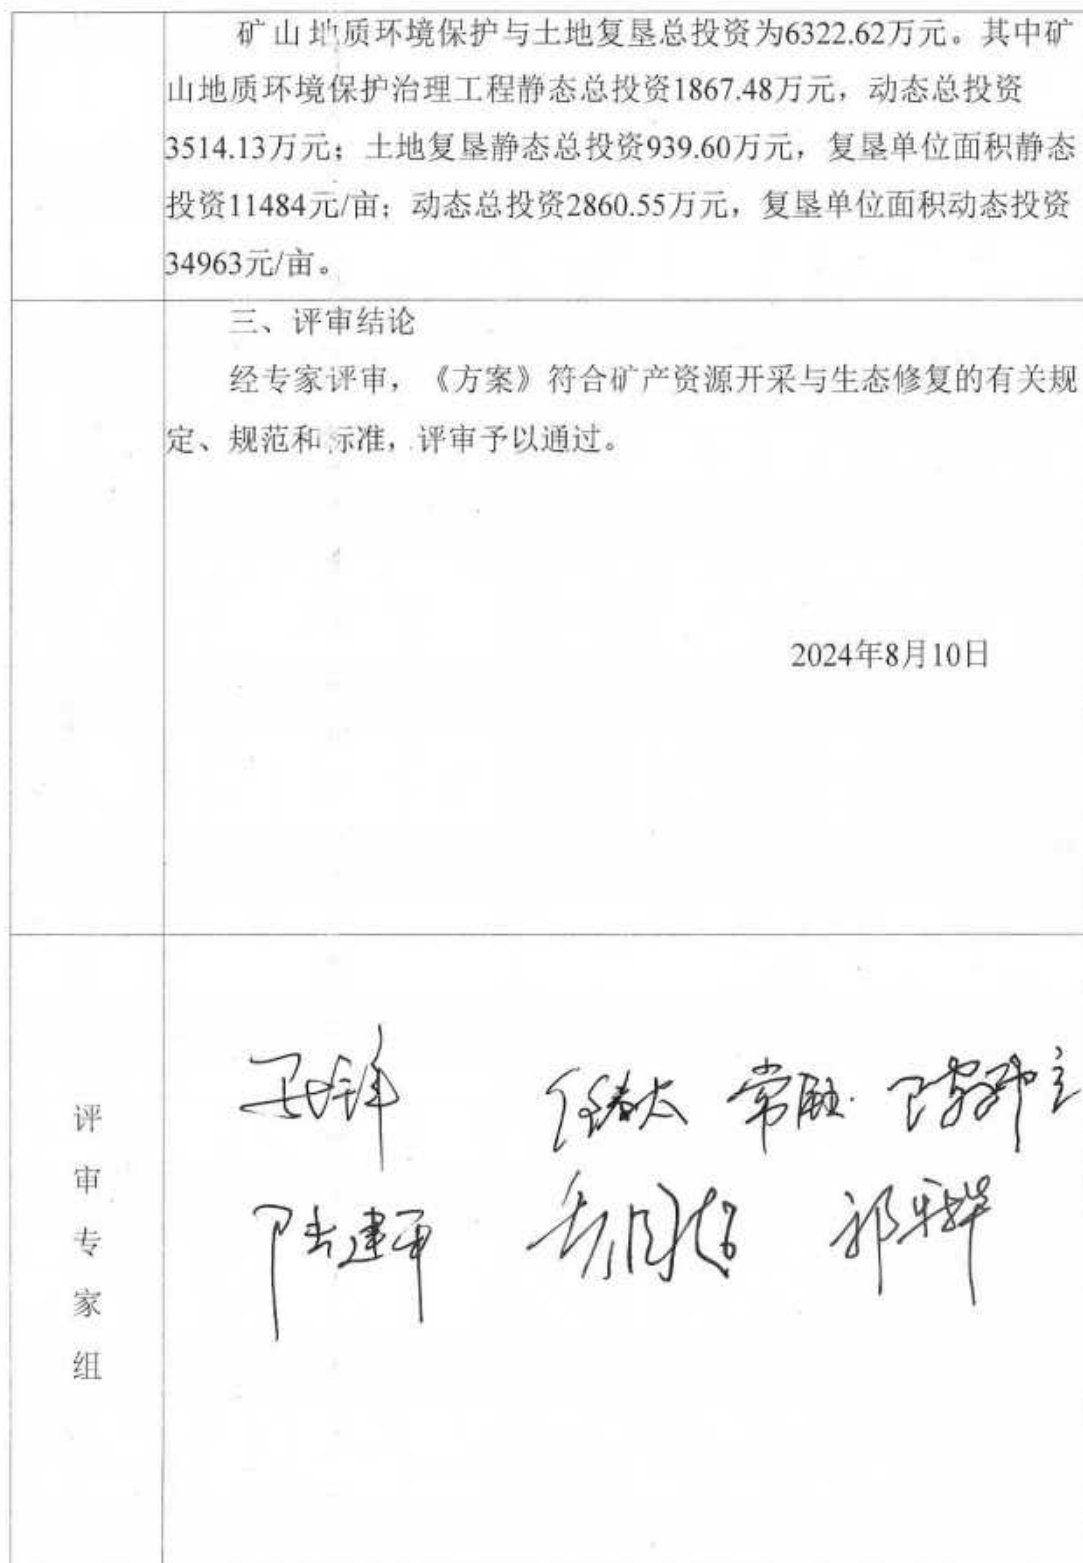 矿山地质环境保护与土地复垦总投资为6322.62万元。其中矿
山地质环境保护治理工程静态总投资1867.48万元，动态总投资
3514.13万元；土地复垦静态总投资939.60万元，复垦单位面积静态
投资11484元/亩；动态总投资2860.55万元，复垦单位面积动态投资
34963元/亩。
三、评审结论
经专家评审，《方案》符合矿产资源开采与生态修复的有关规
定、规范和标准，评审予以通过。
2024年8月10日
评
审
专
家
组